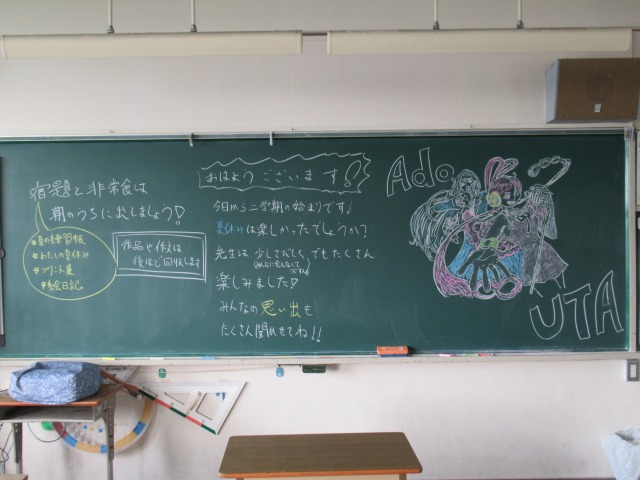 宿題と非常食は
朝のうちに出しましょう!
夏の練習帳
わたしの夏休み
プリント集
絵日記
作品や作文は
後ほど回収します
おはようございます!!
今日から二学期の始まりです♪
夏休みは楽しかったでしょうか?
先生は少しさびしく でもたくさん
(みんなに会えなくてですね)
楽しみました♡
みんなの思い出も
たくさん聞かせてね!!
Ado
UTA